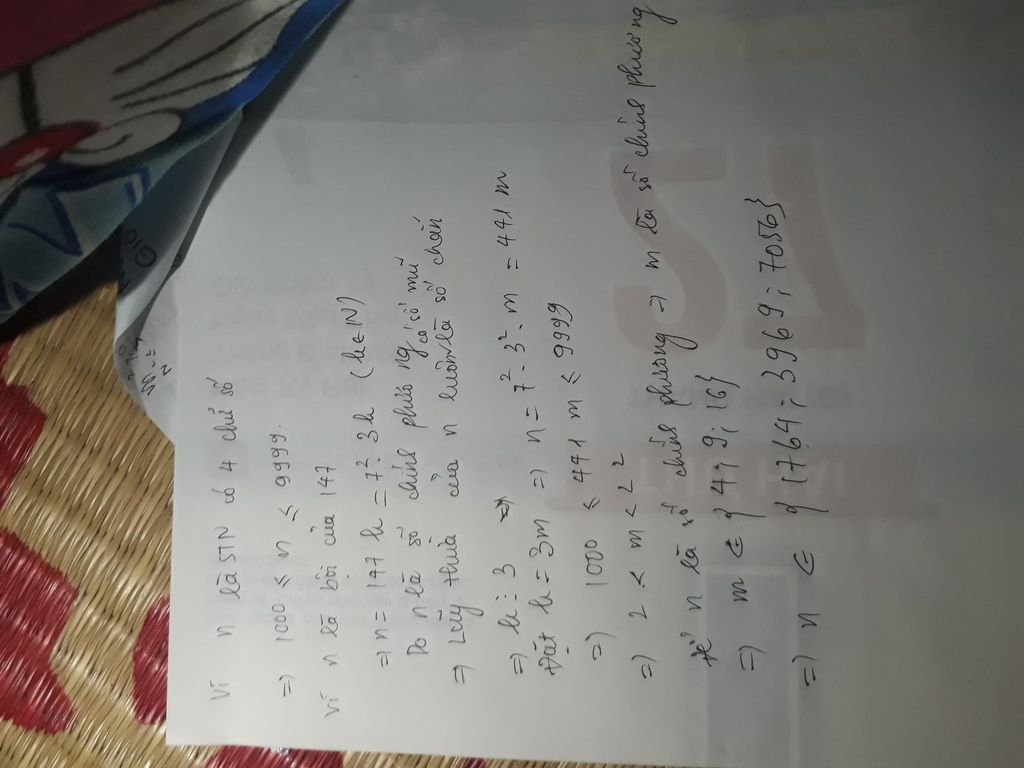 Vì n là STN có 4 chữ số
=) 1000 ≤ n ≤ 9999.
Vì n là bôi của 147
=) n = 147 k = 7². 3k (k∈N)
Do n là số chính phương có số mũ
=) Lũy thừa của n luôn là số chẵn
=) k ⋮ 3
Đặt k = 3m =) n = 7². 3². m = 441 m
=) 1000 ≤ 441 m ≤ 9999
=) 2 < m < 2 2
Để n là số chính phương =) m là số chính phương
=) m ∈ { 4; 9; 16}
=) n ∈ { 1764; 3969; 7056}